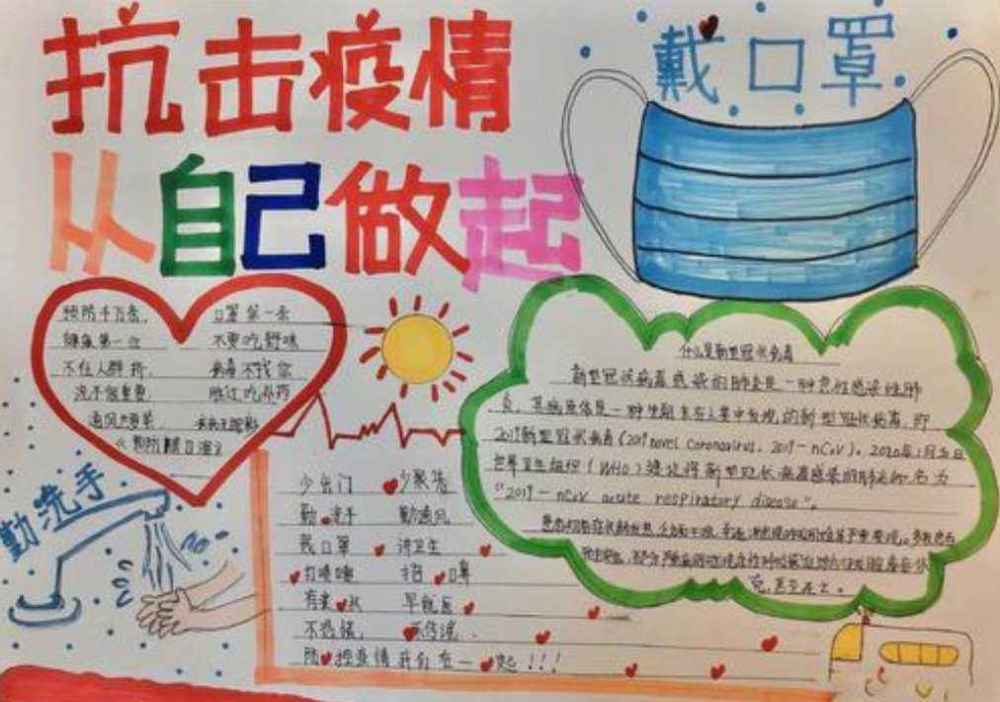 抗击疫情
戴口罩
从自己做起
预防千万条, 口罩第一条
健康第一位 不要吃野味
不在人群挤, 病毒不找你
洗手很重要 胜过吃补药
勤洗手
少出门 少聚集
勤洗手 勤通风
戴口罩 讲卫生
打喷嚏 捂口鼻
早就医
不恐慌, 不传谣.
防控疫情我们在一起!!!
什么是新型冠状病毒
新型冠状病毒感染的肺炎是一种急性感染性肺
炎, 其病原体是一种先前未在人类中发现的新型冠状病毒, 即
2019新型冠状病毒(2019 novel coronavirus, 2019-nCoV)。2020年1月
世界卫生组织(WHO)建议将新型冠状病毒感染的肺炎命名为
"2019-nCoV acute respiratory disease"。